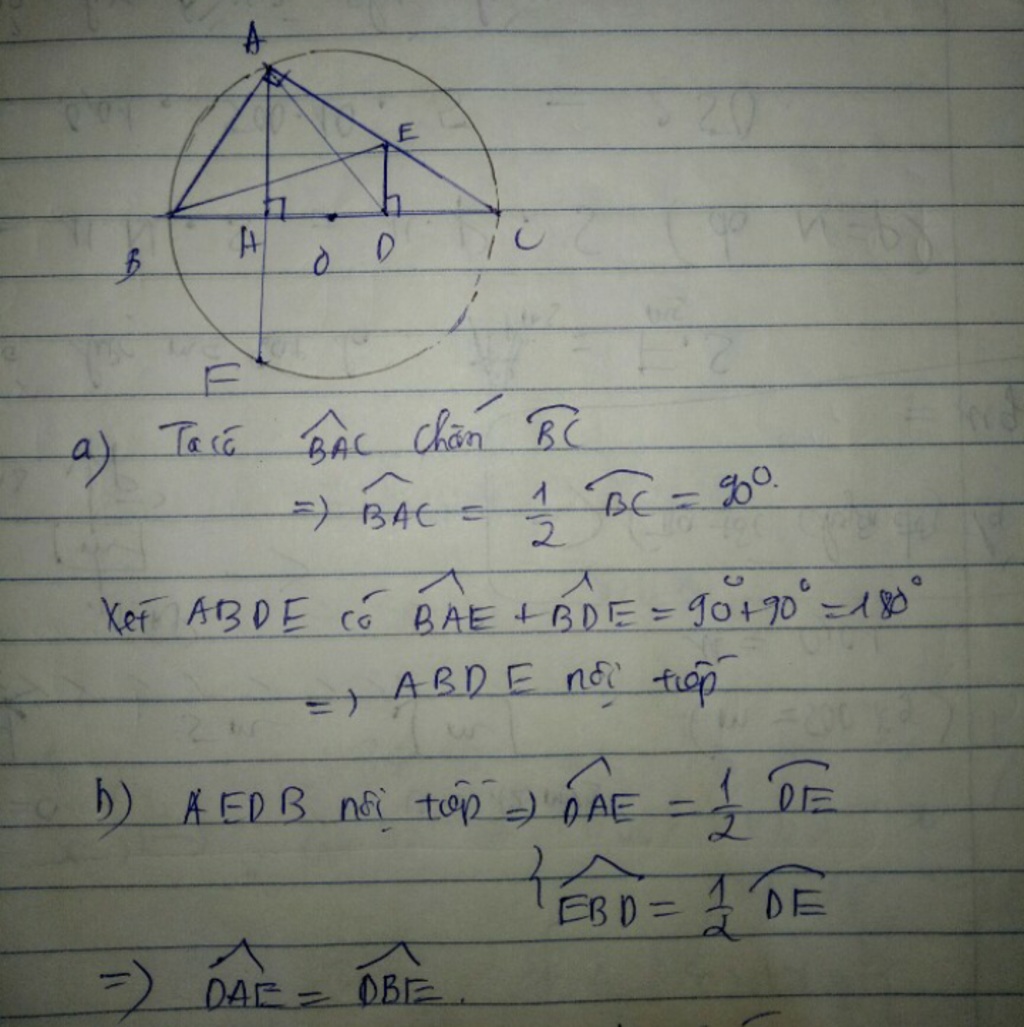 A
E
B
H
O
D
C
F
a) Ta có \widehat{BAC} chắn \overset{\frown}{BC}
=> \widehat{BAC} = \frac{1}{2} \overset{\frown}{BC} = 90°.
Xét ABDE có \widehat{BAE} + \widehat{BDE} = 90° + 90° = 180°
=> ABDE nội tiếp
b) AEDB nội tiếp => \widehat{DAE} = \frac{1}{2} \overset{\frown}{DE}
{ \widehat{EBD} = \frac{1}{2} \overset{\frown}{DE}
=> \widehat{DAE} = \widehat{DBE}.